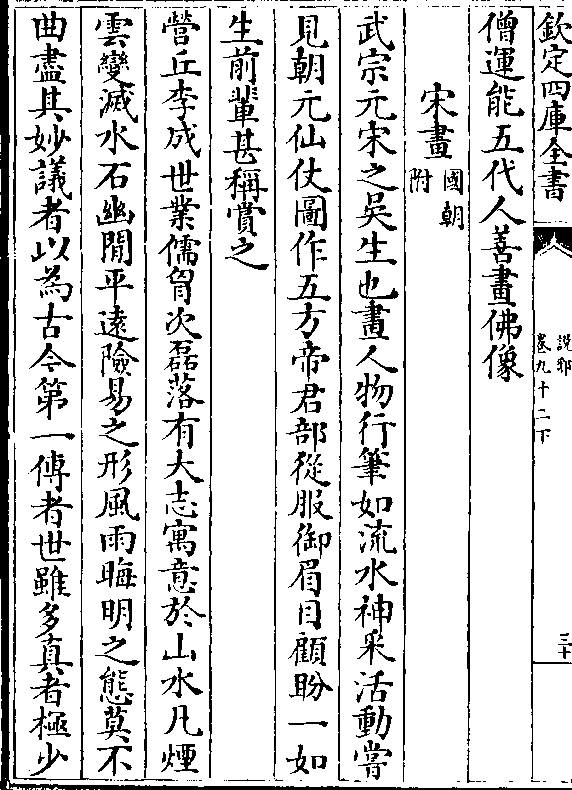 欽定四庫全書
說郛
卷九十二下
三十
僧運能五代人善畫佛像
宋畫
國朝
附
武宗元宋之吳生也畫人物行筆如流水神采活動嘗
見朝元仙仗圖作五方帝君部從服御眉目顧盼一如
生前輩甚稱賞之
營丘李成世業儒胷次磊落有大志寓意於山水凡煙
雲變滅水石幽閒平遠險易之形風雨晦明之態莫不
曲盡其妙議者以為古今第一傳者世雖多真者極少